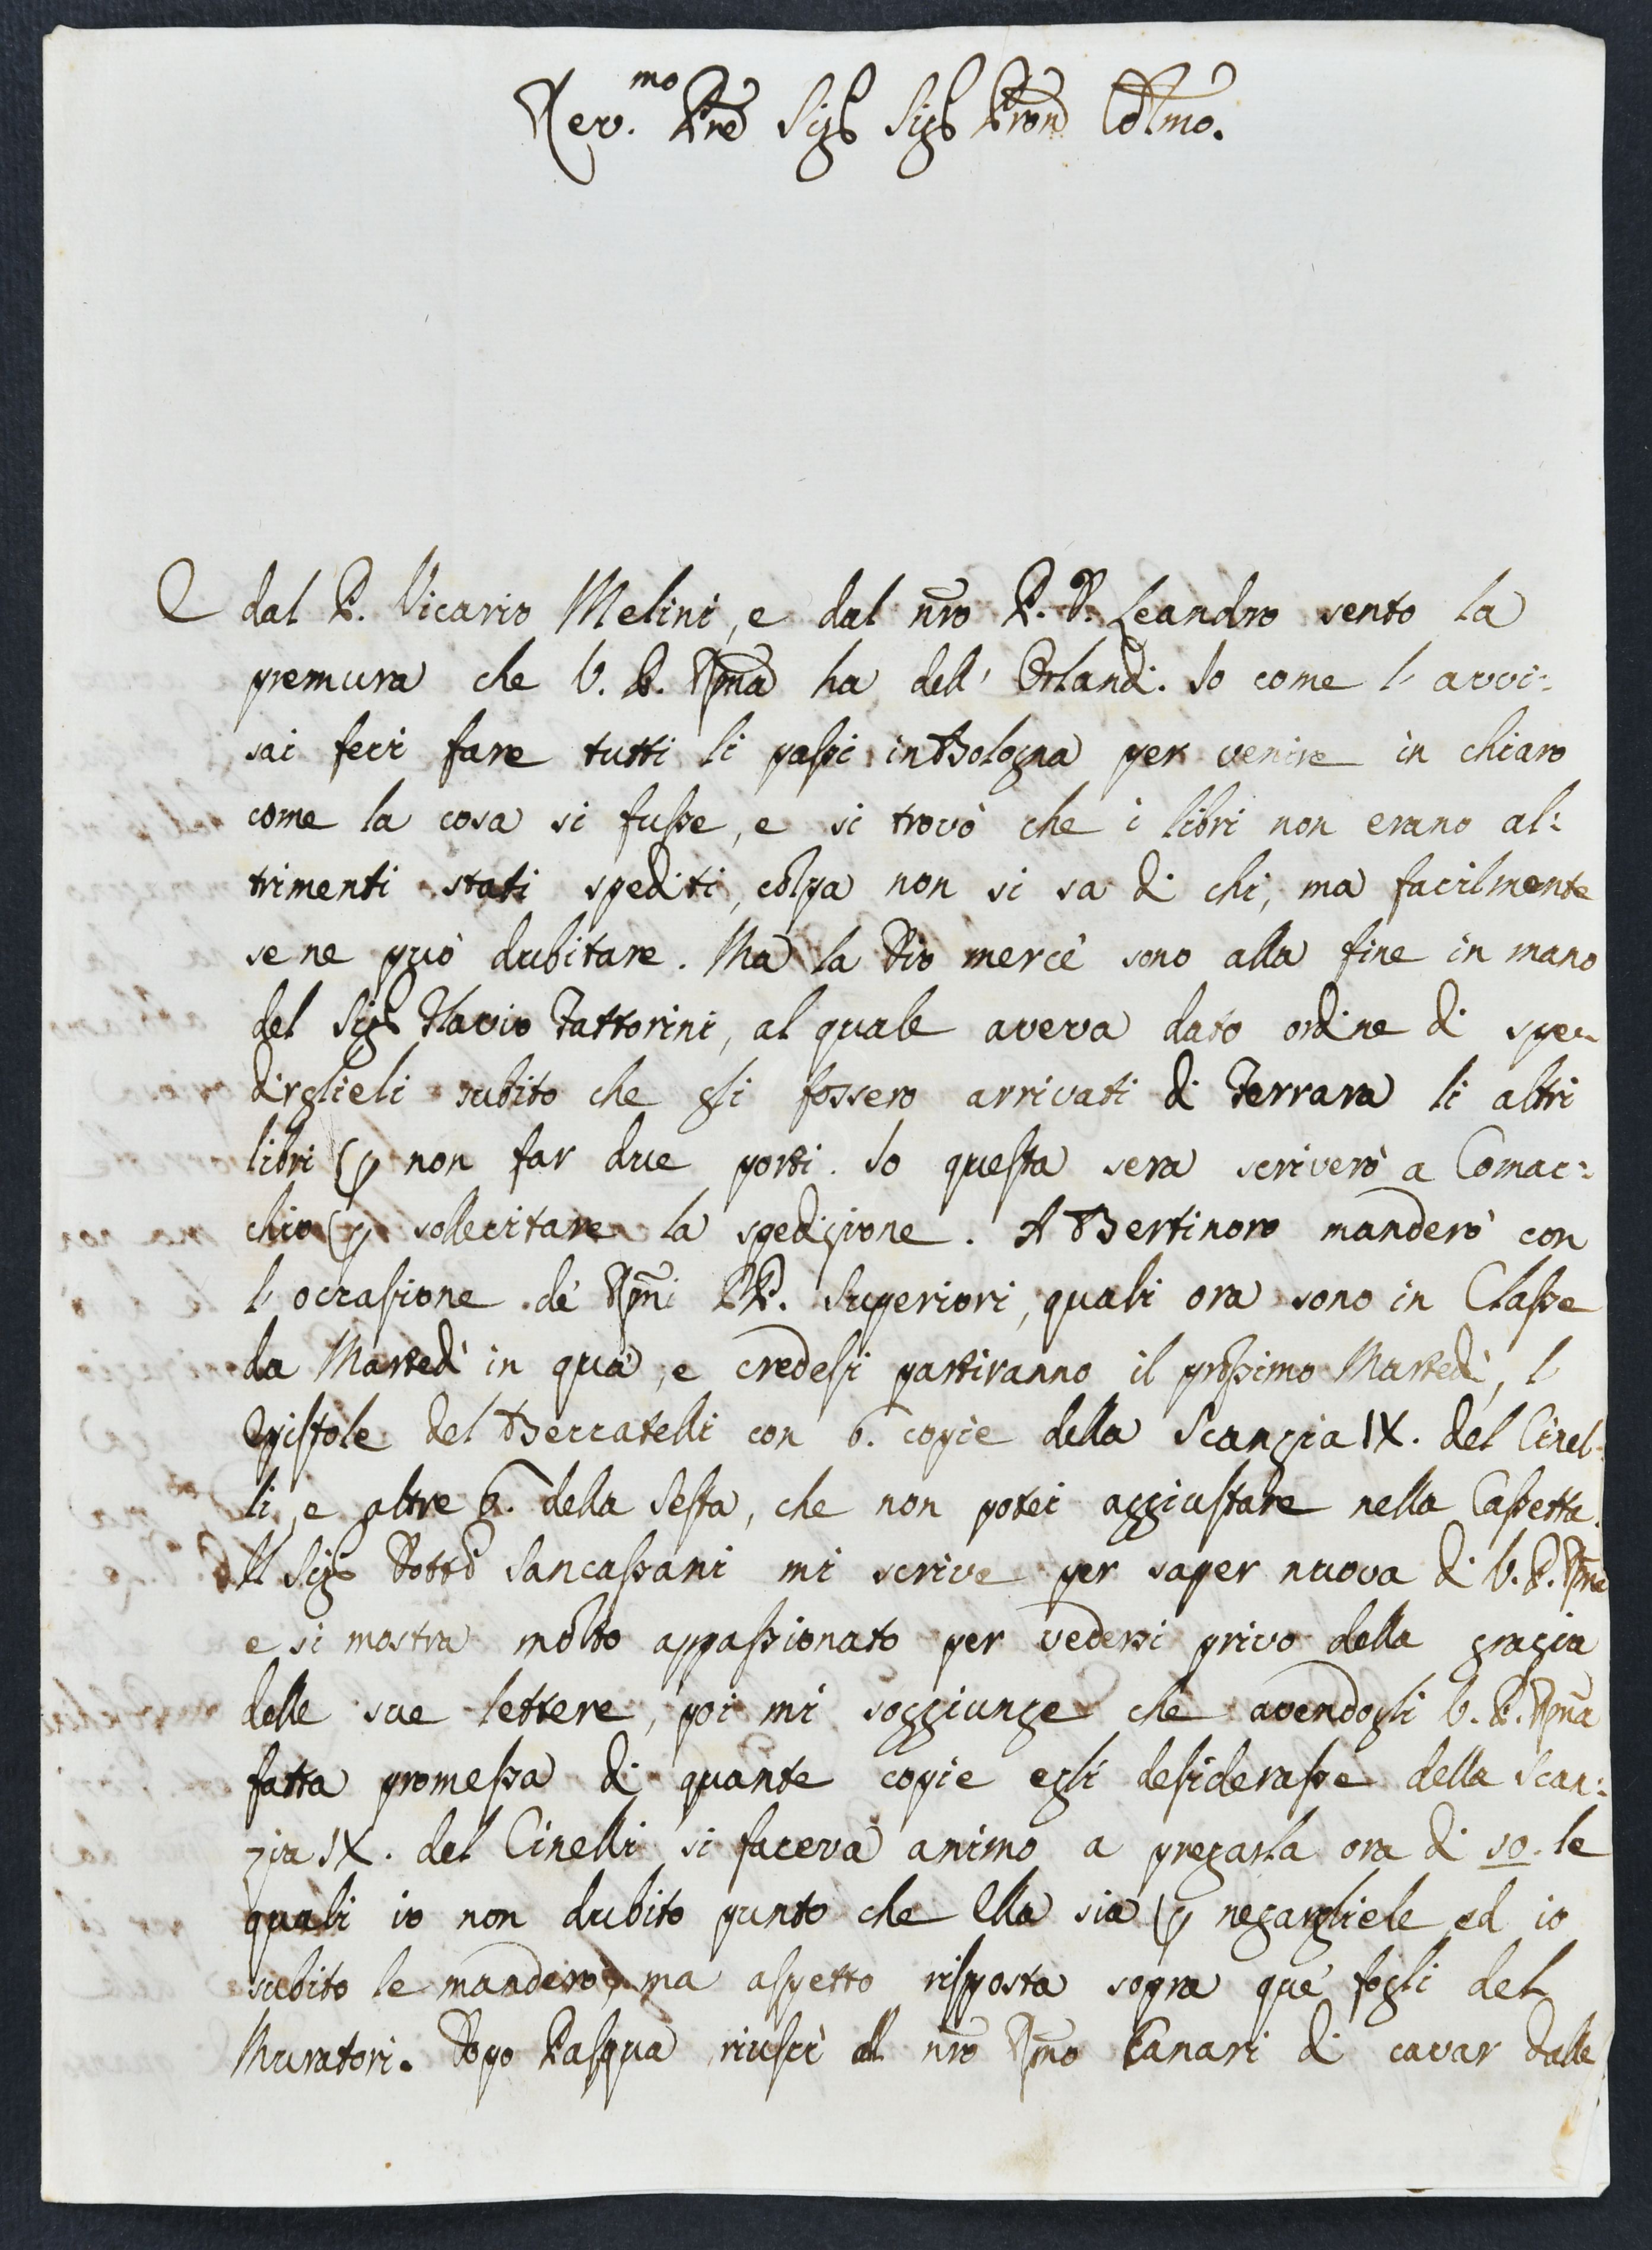 Rev.mo Pre Sigr Sigr Pron Colmo.
E dal P. Vicario Melini, e dal nro P. D. Leandro sento la
premura che V. P. Rma ha dell' Orlandi. Io come l' avvi:
sai feci fare tutti li passi in Bologna per venire in chiaro
come la cosa si fusse, e si trovò che i libri non erano al:
trimenti stati spediti, colpa non si sa di chi, ma facilmente
se ne può dubitare. Ma la Dio mercè sono alla fine in mano
del Sigr Flavio Fattorini, al quale aveva dato ordine di spe:
dirglieli subito che gli fossero arrivati di Ferrara li altri
libri p non far due porti. Io questa sera scriverò a Comac:
chio p sollecitare la spedizione. A Bertinoro manderò con
l' occasione de' Rmi PP. Superiori, quali ora sono in Classe
da Martedì in quà, e credesi partiranno il prossimo Martedì, l'
Epistole del Beccatelli con 6. copie della Scanzia IX. del Cinel:
li, e altre 6. della Sesta, che non potei aggiustare nella Cassetta.
Il Sigr Dottr Sancassani mi scrive per saper nuova di V. P. Rma
e si mostra molto appassionato per vedersi privo della grazia
delle sue lettere, poi mi soggiunge che avendogli V. P. Rma
fatta promessa di quante copie egli desiderasse della Scan:
zia IX. del Cinelli si faceva animo a pregarla ora di 10. le
quali io non dubito punto che Ella sia p negargliele ed io
subito le manderò, ma aspetto risposta sopra que' fogli del
Muratori. Dopo Pasqua riuscì al nro Rmo Canari di cavar dalle